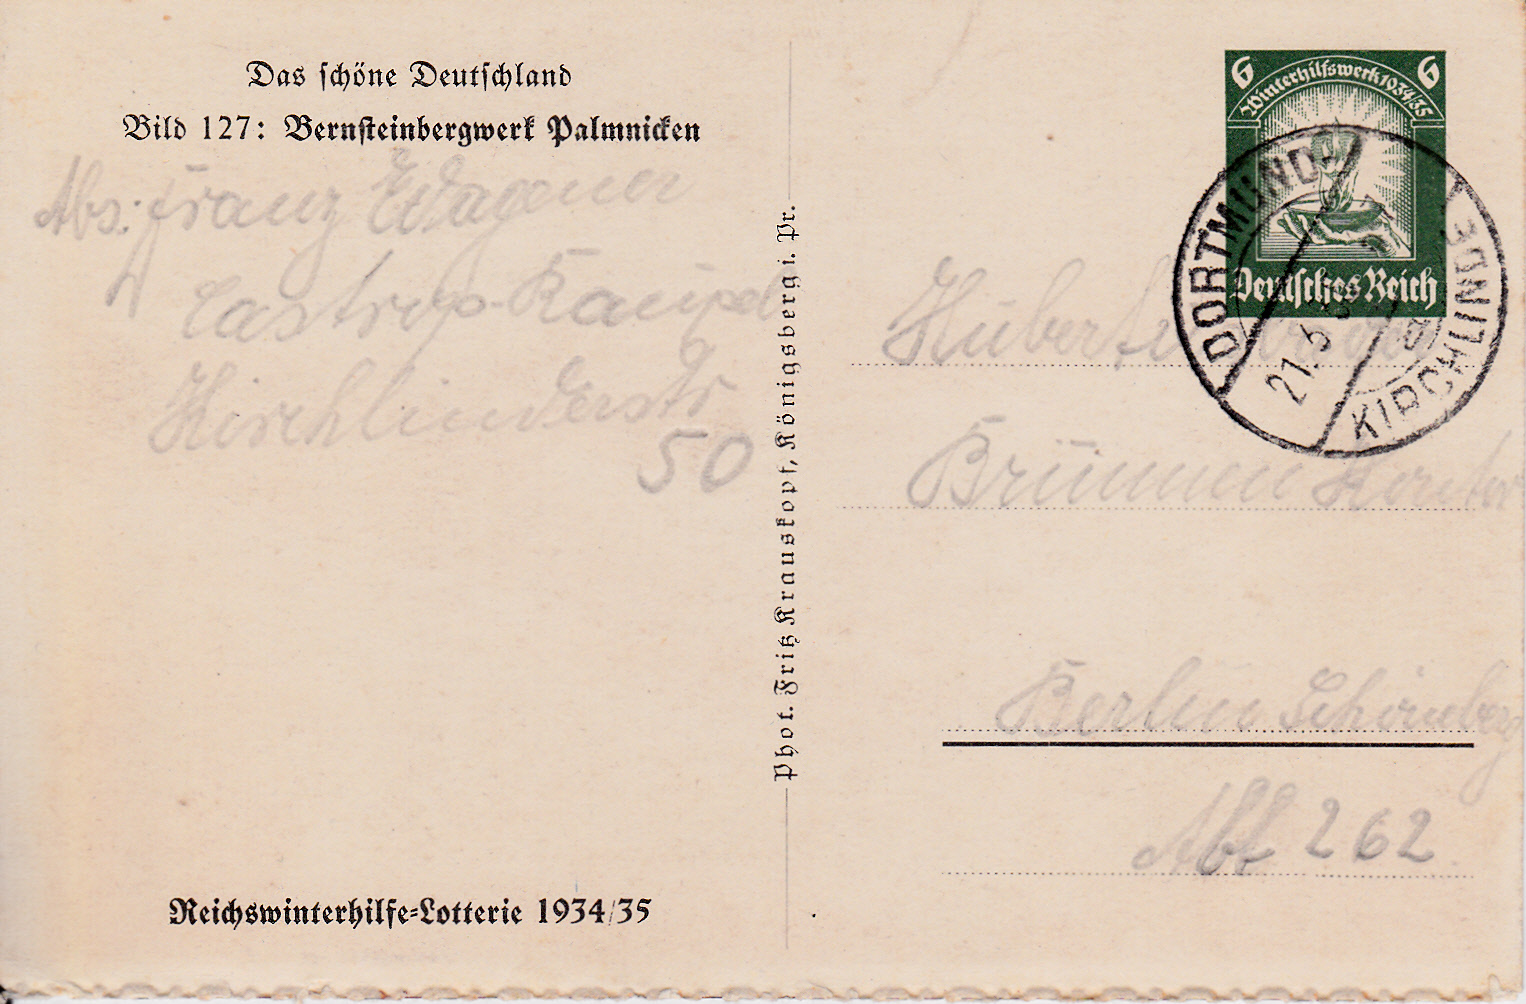 Das schöne Deutschland
Bild 127: Bernsteinbergwerk Palmnicken
Abs: Franz Wagener
Castrop-Rauxel
Kirchlinderstr
50
Reichswinterhilfe-Lotterie 1934/35
Phot. Fritz Krauskopf, Königsberg i. Pr.
6 6
Winterhilfswerk 1934/35
Deutsches Reich
DORTMUND-
KIRCHLINDE
21.3
a
Hubertus
Brunnen Kontor
Berlin Schöneberg
Abt 262